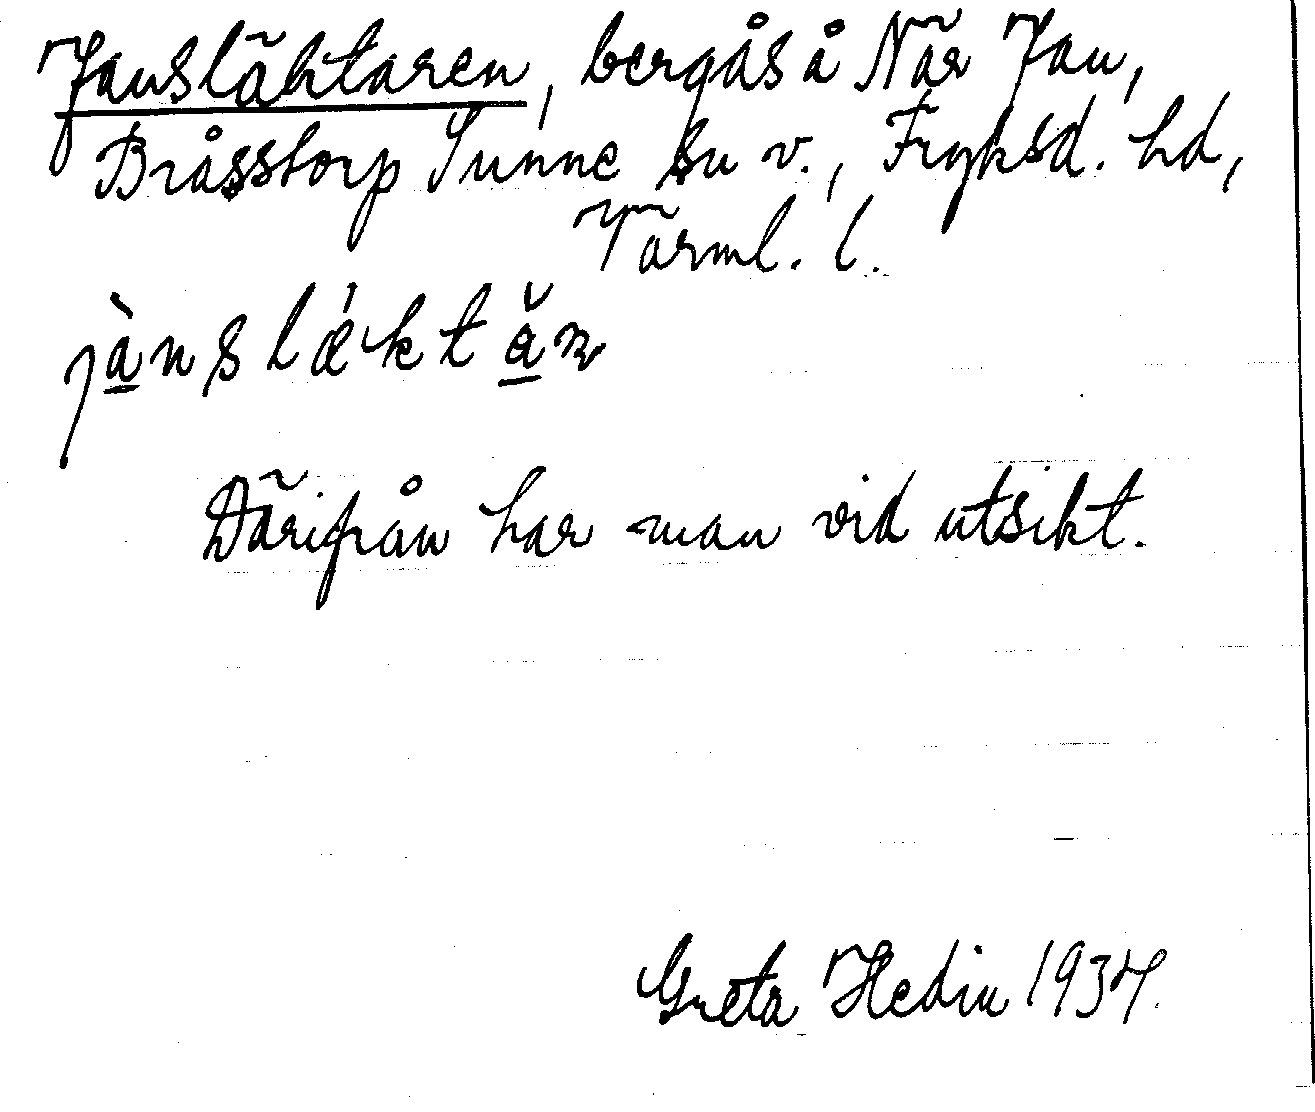 Janslähtaren, bergås å När Jan,
Bråsstorp Sunne sn v., Fryksd. hd,
Värml. l.
jànslǽktăn
Därifrån har man vid utsikt.
Greta Hedin 1937.